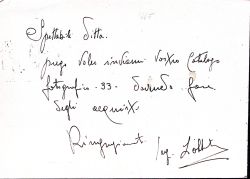 Spettabile Ditta.
prego voler inviarmi vostro Catalogo
fotografico - 33 - dovendo fare
degli acquisti.
Ringraziamenti